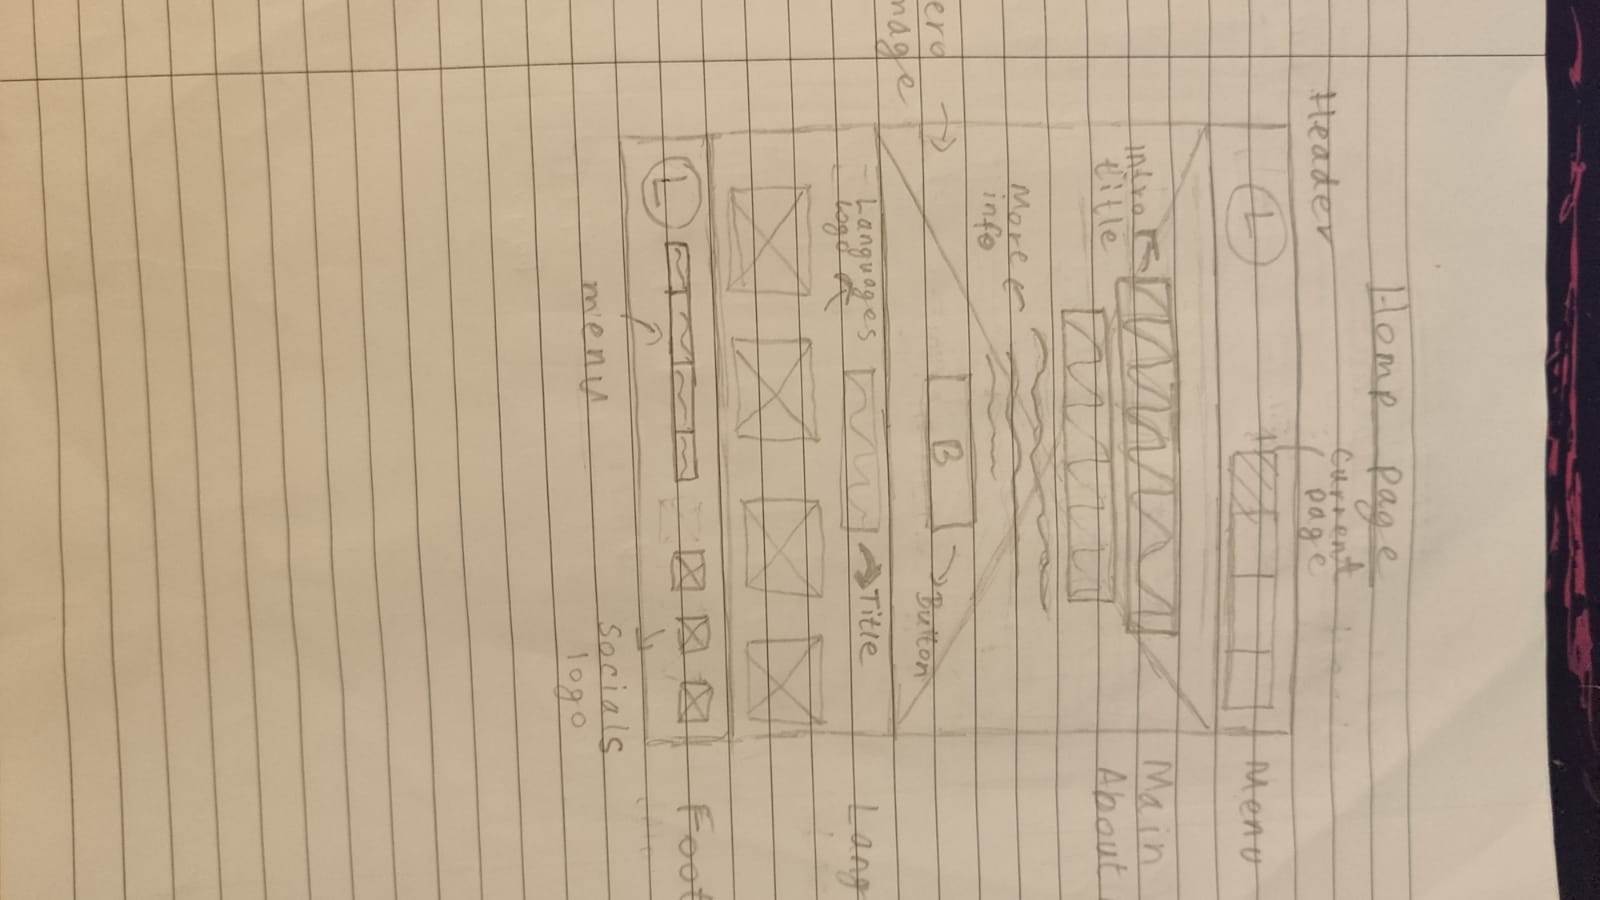 Home page
Header
Current
page
L
Menu
Intro
title
Main
About
More
info
ero
mage
B
Button
Languages
logo
Title
Lang
L
Foot
menu
Socials
logo